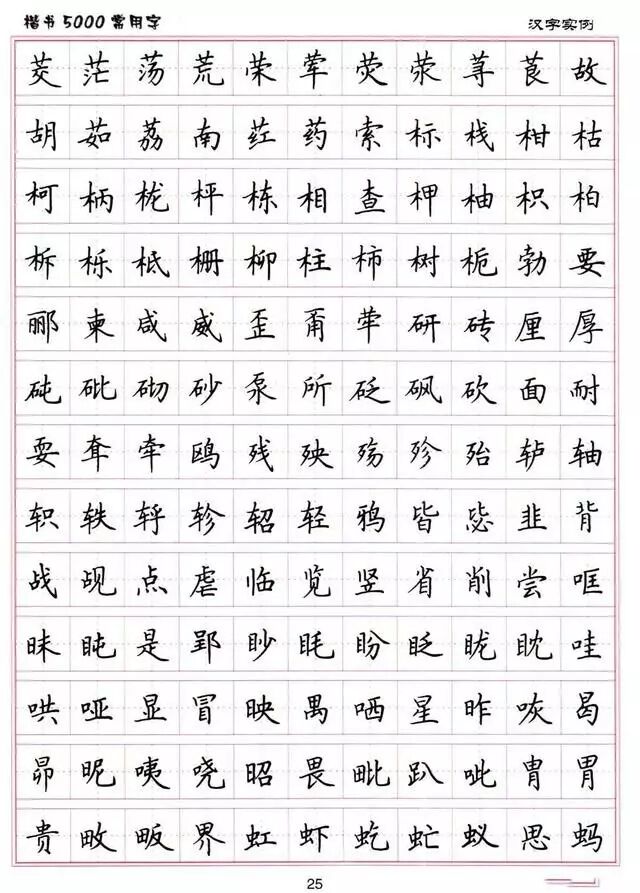 楷书5000常用字
汉字实例
茭茫荡荒荣荤荧荥荨茛故
胡茹荔南荭药索标栈柑枯
柯柄栊枰栋相查柙柚枳柏
柝栎柢栅柳柱柿树栀勃要
郦柬咸威歪甭荦研砖厘厚
砘砒砌砂泵所砭砜砍面耐
耍耷牵鸥残殃殇殄殆轳轴
轵轶轷轸轺轻鸦皆毖韭背
战觇点虐临览竖省削尝哐
昧盹是郢眇眊盼眨眬眈哇
哄哑显冒映禺哂星昨咴曷
昴昵咦哓昭畏毗趴呲胄胃
贵畋畈界虹虾虼虻蚁思蚂
25